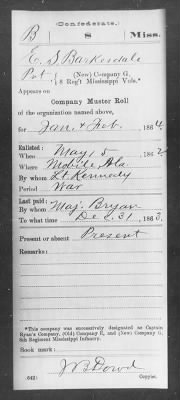 (Confederate.)
B 8 Miss.
E. S. Barkesdale
Pvt., (New) Company G,
8 Reg't Mississippi Vols.*
Appears on
Company Muster Roll
of the organization named above,
for Jan. & Feb., 1864.
Enlisted:
When May 15, 1862.
Where Mobile Ala.
By whom Lt. Kennedy
Period War
Last paid:
By whom Maj. Bryan
To what time Dec. 31, 1863.
Present or absent Present
Remarks:
*This company was successively designated as Captain
Ryan's Company, (Old) Company E, and (New) Company G,
8th Regiment Mississippi Infantry.
Book mark:
J B Dowd
(642) Copyist.